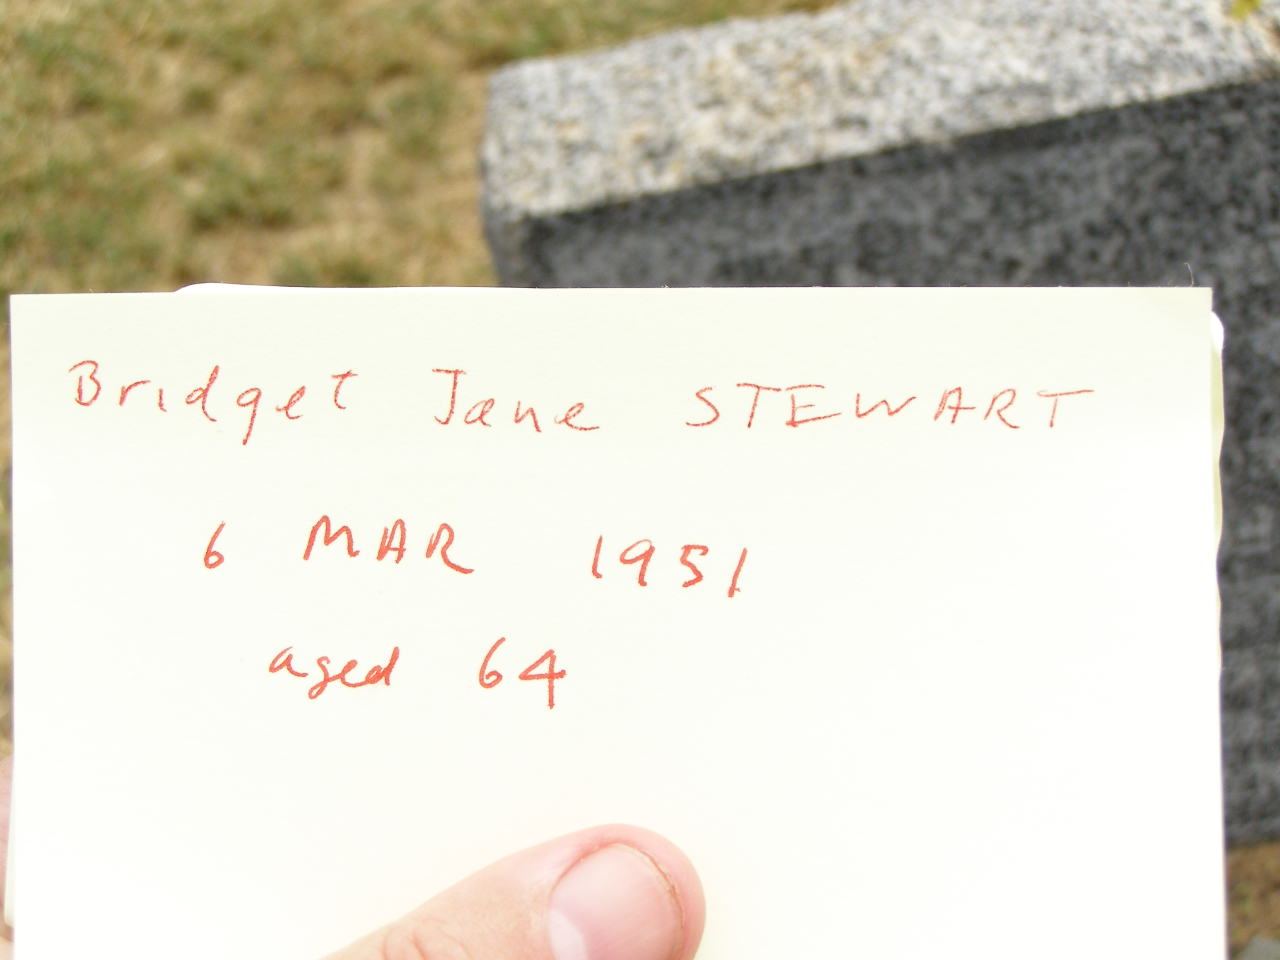 Bridget Jane STEWART
6 MAR 1951
aged 64